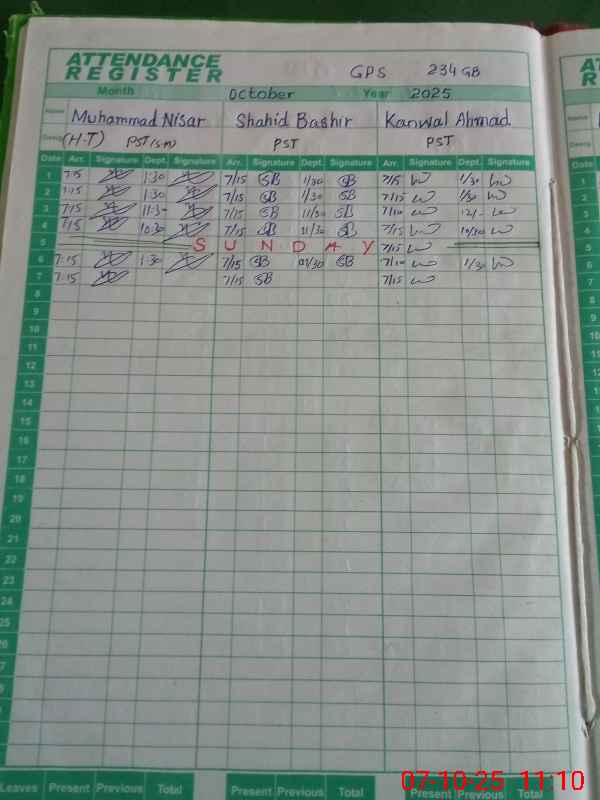 ATTENDANCE
REGISTER GPS 234 GB
Month October Year 2025
Name Muhammad Nisar Shahid Bashir Kanwal Ahmad
(H-T) PST PST
Date Arr. Signature Dept. Signature Arr. Signature Dept. Signature Arr. Signature Dept. Signature
1 7:15 1:30 7/15 SB 1/30 SB 7/15 1/30
2 7:15 1:30 7/15 SB 1/30 SB 7/15 1/30
3 7:15 11:30 7/15 SB 11/30 SB 7/10 12/-
4 7:15 10:30 7/15 SB 11/30 SB 7/15 10/30
5 SUNDAY 7/15
6 7:15 1:30 7/15 SB 01/30 SB 7/10 1/30
7 7:15 7/15 SB 7/15
8
9
10
11
12
13
14
15
16
17
18
19
20
21
22
23
24
25
26
27
28
29
30
31
Leaves Present Previous Total Present Previous Total Present Previous Total
07-10-25 11:10